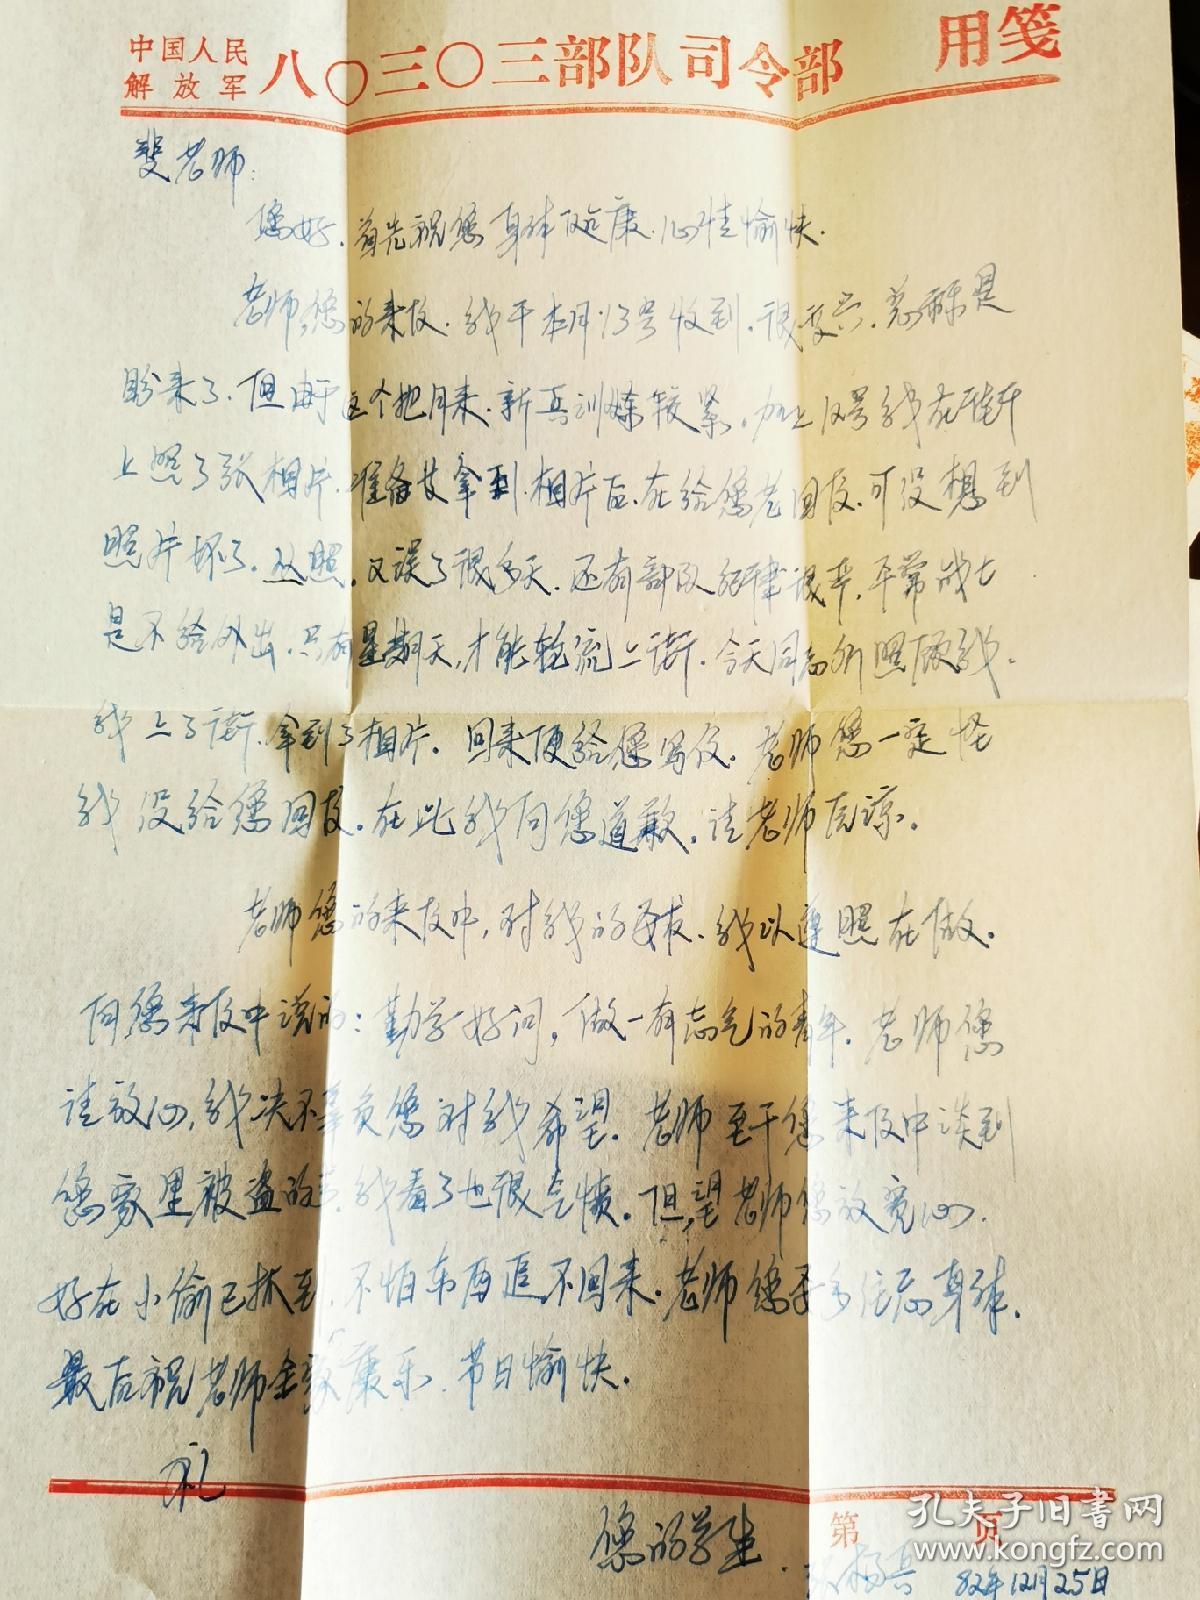 中国人民
解放军
八〇三〇三部队司令部
用笺
老师:
您好.首先祝您身体健康.心情愉快.
老师,您的来信.我于本月13号收到.很高兴.总算是
盼来了.但由于这个把月来.新兵训练较紧.加上12号我在街
上照了张相片.准备拿到相片后.在给您老回信.可没想到
照片坏了.又照.又误了很多天.还有部队纪律,平常战士
是不给外出.只有星期天,才能轮流上街.今天同志们照顾我.
我上了街.拿到了相片。回来便给您写信.老师您一定怪
我没给您回信.在此我向您道歉.请老师原谅.
老师您的来信中,对我的要求.我以遵照在做.
向您来信中说的:勤学好问,做一有志气的青年.老师您
请放心,我决不辜负您对我希望.老师至于您来信中谈到
您家里被盗的事.我看了也很气愤.但,望老师您放宽心.
好在小偷已抓到.不怕东西追不回来.老师您要多注意身体.
最后祝老师全家康乐.节日愉快.
礼
您的学生.
第 页
82年12月25日
孔夫子旧书网
www.kongfz.com